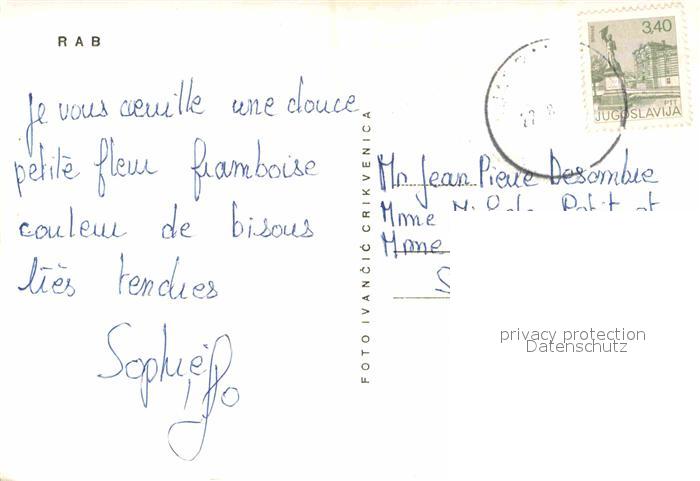 RAB
Je vous cueille une douce
petite fleur framboise
couleur de bisous
très tendres
Sophie
FOTO IVANČIĆ CRIKVENICA
3,40
PTT
JUGOSLAVIJA
Mr Jean Pierre Desombre
Mme
Mme
privacy protection
Datenschutz